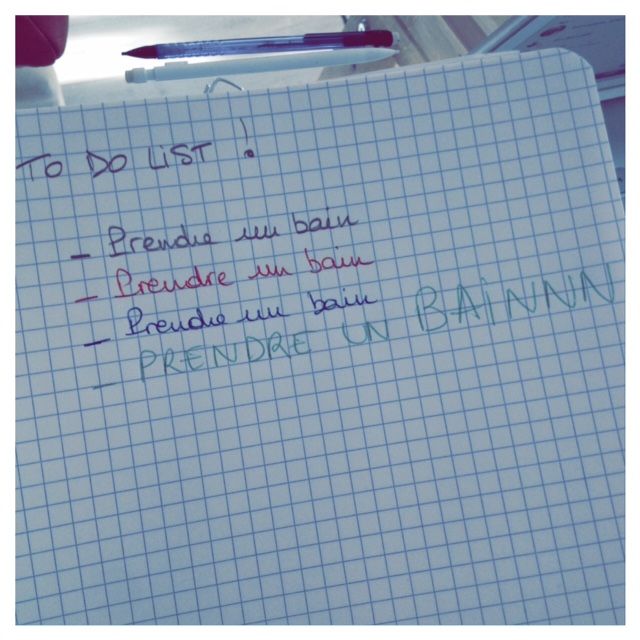 TO DO LIST !
- Prendre un bain
- Prendre un bain
- Prendre un bain
- PRENDRE UN BAINNN